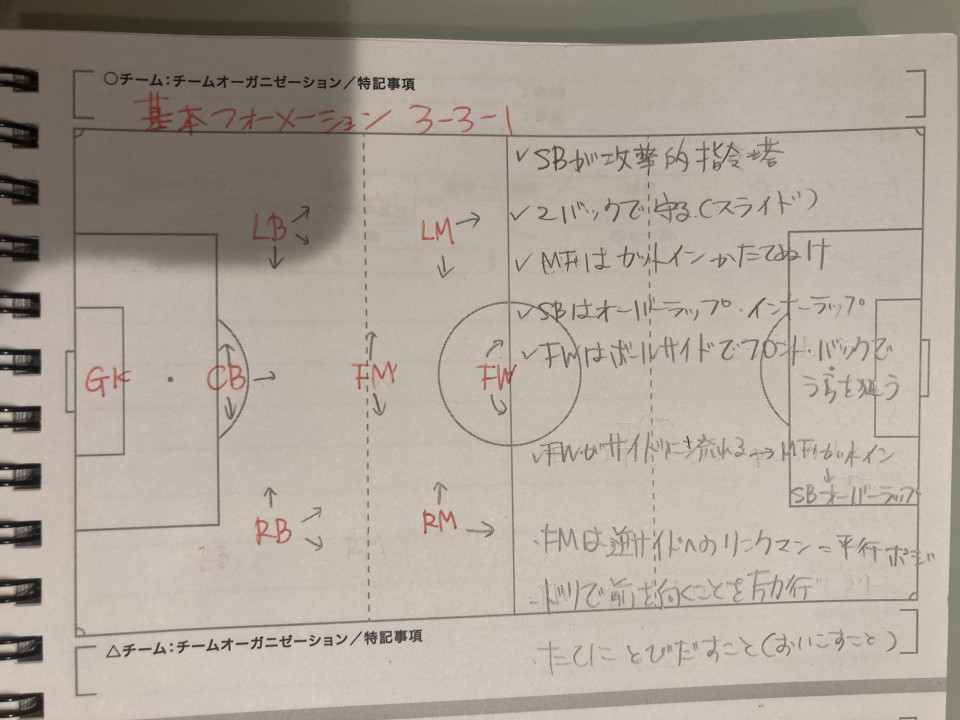 ○チーム：チームオーガニゼーション／特記事項
基本フォーメーション 3-3-1
✓ SBが攻撃的指令塔
✓ 2バックで守る（スライド）
✓ MFはカットインかたてぬけ
✓ SBはオーバーラップ・インナーラップ
✓ FWはボールサイドでフロント・バックで
うらを狙う
✓ FWがサイドに流れる → MFカットイン
↓
SBオーバーラップ
・FMは逆サイドへのリンクマン＝平行ポジ
・ドリで前を向くことを
・たてにとびだすこと（おいこすこと）
LB
LM
GK
CB
FM
FW
RB
RM
RM
△チーム：チームオーガニゼーション／特記事項